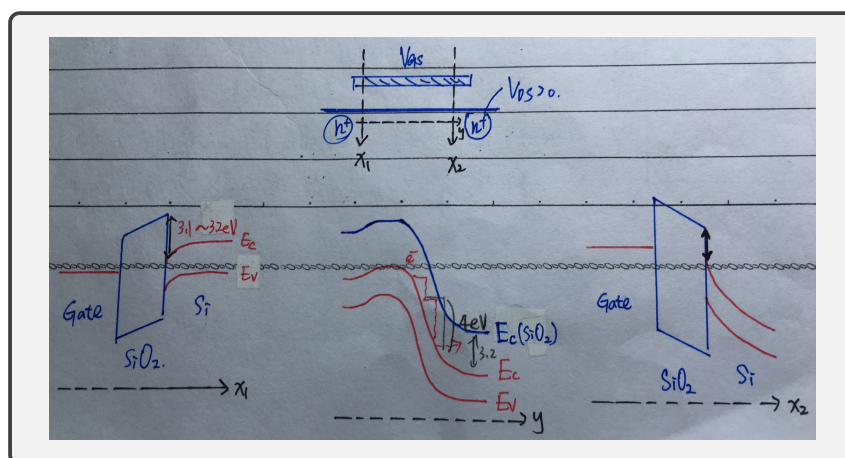 VGS
VDS>0.
n+
y
n+
x1
x2
3.1~3.2eV
Ec
Ev
Gate
Si
SiO2.
x1
e-
4eV
Ec(SiO2)
3.2
Ec
Ev
y
Gate
SiO2
Si
x2